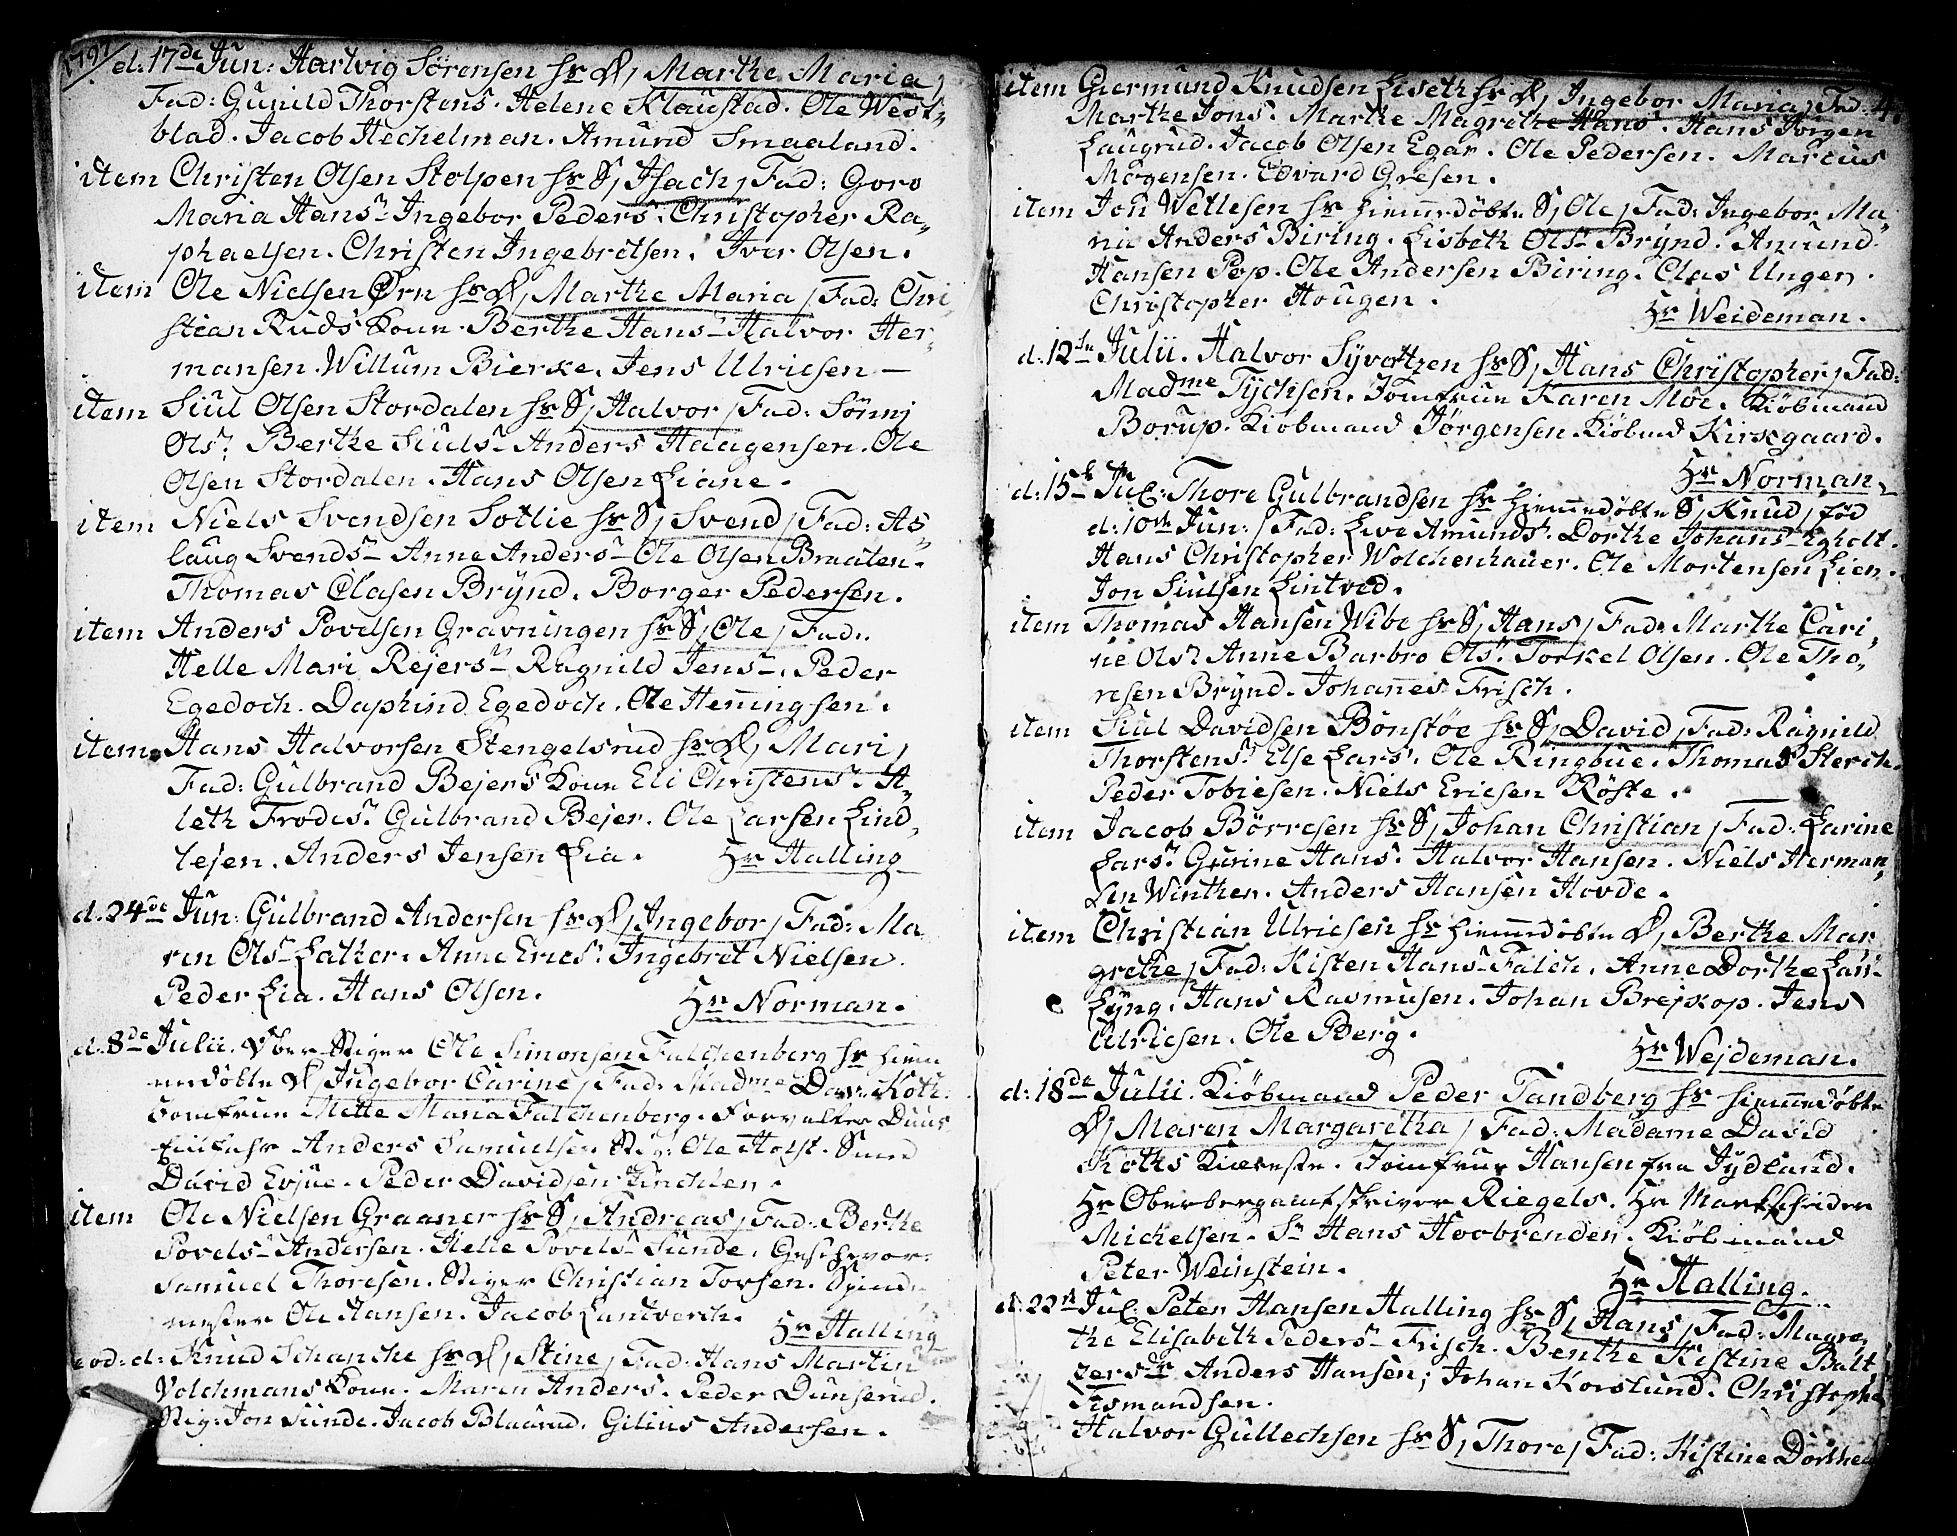 1797
d: 17de Jun: Hartvig Sörensen hs D, Marthe Maria,
Fad: Gunild Thorstens. Helene Klaustad. Ole West-
blad. Jacob Hechelman. Amund Smaaland.
item Christen Olsen Stolpen hs S, Isach, Fad: Goro
Maria Hans. Ingebor Peders. Christopher Ra-
phaelsen. Christen Ingebretsen. Iver Olsen.
item Ole Nielsen Ørn hs D, Marthe Maria, Fad: Chri
stian Ruds Kone. Berthe Hans. Halvor Her-
mansen. Willum Bierke. Jens Ulricsen
item Siul Olsen Stordalen hs S, Halvor, Fad: Sönnj
Ols. Berthe Siuls. Anders Haagensen. Ole
Olsen Stordalen. Hans Olsen Liane.
item Niels Svendsen Sotlie hs S, Svend, Fad: As-
laug Svends. Anne Anders. Ole Olsen Braaten.
Thomas Olasen Brÿnd. Borger Pedersen.
item Anders Povelsen Gravningen hs S, Ole, Fad:
Helle Mari Rejers. Ragnild Jens. Peder
Egedoch. Daphind Egedoch. Ole Henningsen.
item Hans Halvorsen Stengelsrud hs D, Mari,
Fad: Gulbrand Bejers Kone Eli Christens. A-
leth Frodes. Gulbrand Bejer. Ole Larsen Lind-
tejen. Anders Jensen Lia. Hr Halling
d. 24de Jun: Gulbrand Andersen hs D, Ingebor, Fad: Ma
ren Ols. Lather. Anne Erics. Ingebret Nielsen.
Peder Lia. Hans Olsen. Hr Norman.
d. 8de Julii. Ober Stiger Ole Simonsen Falchenberg hs hiem
medöbte D, Ingebor Carine, Fad: Madme Dav. Koth.
Jomfrue Mette Maria Falchenberg. Forvalter Duus
Anders Samuelsen Stig. Ole Holst.
David Evjue. Peder Davidsen
item Ole Nielsen Graaner hs S, Andreas, Fad: Berthe
Povels. Andersen. Helle Povels. Sunde. Geschwor.
Samuel Thoresen. Stiger Christian Torsen.
mester Ole Hansen. Jacob Landverch. Hr Halling
eod: d: Knud Schanche hs D, Stine, Fad: Hans Martin
Volchmans Kone. Maren Anders. Peder Dunserud.
Stig: Jon Sunde. Jacob Blaarud. Gilius Andersen.
item Giermund Knudsen Liseth hs D, Ingebor Maria, Fad:
Marthe Jons. Marthe Magrethe Hans. Hans Jörgen
Laugrud. Jacob Olsen Egar. Ole Pedersen. Marcus
Mogensen. Edvard Gresen.
item Jon Wetlesen hs hiemmedöbte S, Ole, Fad: Ingebor Ma
rie Anders Biring. Lisbeth Ols. Brÿnd. Amund
Hansen Pop. Ole Andersen Biring. Clas Unger.
Christopher Hougen. Hr Weideman.
d. 12te Julii. Halvor Syvertzen hs S, Hans Christopher, Fad:
Madme Tychsen. Jomfrue Karen Moe. Kiöbmand
Borup. Kiöbmand Jørgensen. Kiöbmd Kirkgaard.
Hr Norman.
d. 15de Jul: Thore Gulbrandsen hs hiemmedöbte S, Knud, fød
d: 10de Jun:, Fad: Live Amunds. Dorthe Johans. Egholt.
Hans Christopher Wolchenhauer. Ole Mortensen Lien.
Jon Siulsen Lintved.
item Thomas Hansen Wibe hs S, Hans, Fad: Marthe Cari-
ne Ols. Anne Barbro Ols. Torkel Olsen. Ole Tho-
resen Brÿnd. Johannes Frisch.
item Siul Davidsen Bonstöe hs S, David, Fad: Ragnild
Thorstens. Else Lars. Ole Ringbue. Thomas Sterch.
Peder Tobiesen. Niels Ericsen Röste.
item Jacob Börresen hs S, Johan Christian, Fad: Larine
Lars. Gurine Hans. Halvor Hansen. Niels Herman-
sen Winther. Anders Hansen Hovde.
item Christian Ulricsen hs hiemmedöbte D, Berthe Mar
grethe, Fad: Kisten Hans. Falch. Anne Dorthe Lau-
Lÿng. Hans Rasmusen. Johan Brejskop. Jens
Ulricsen. Ole Berg. Hr Wejdeman.
d. 18de Julii. Kiöbmand Peder Tandberg hs hiemmedöbte
D, Maren Margaretha, Fad: Madame David
Koths Kiereste. Jomfrue Hansen fra Jydland.
Hr Oberbergamtskriver Riegels. Hr Markscheider
Michelsen. Sr Hans Hoobrenden. Kiöbmand
Peter Weinstein. Hr Halling.
d. 22de Jul: Peter Hansen Halling hs S, Hans, Fad: Magre-
the Elisabeth Peders. Frisch. Benthe Kistine Balt
zersdr Anders Hansen; Johan Korslund. Christopher
Tismandsen.
Halvor Gullechsen hs S, Thore, Fad: Kistine Dorthea